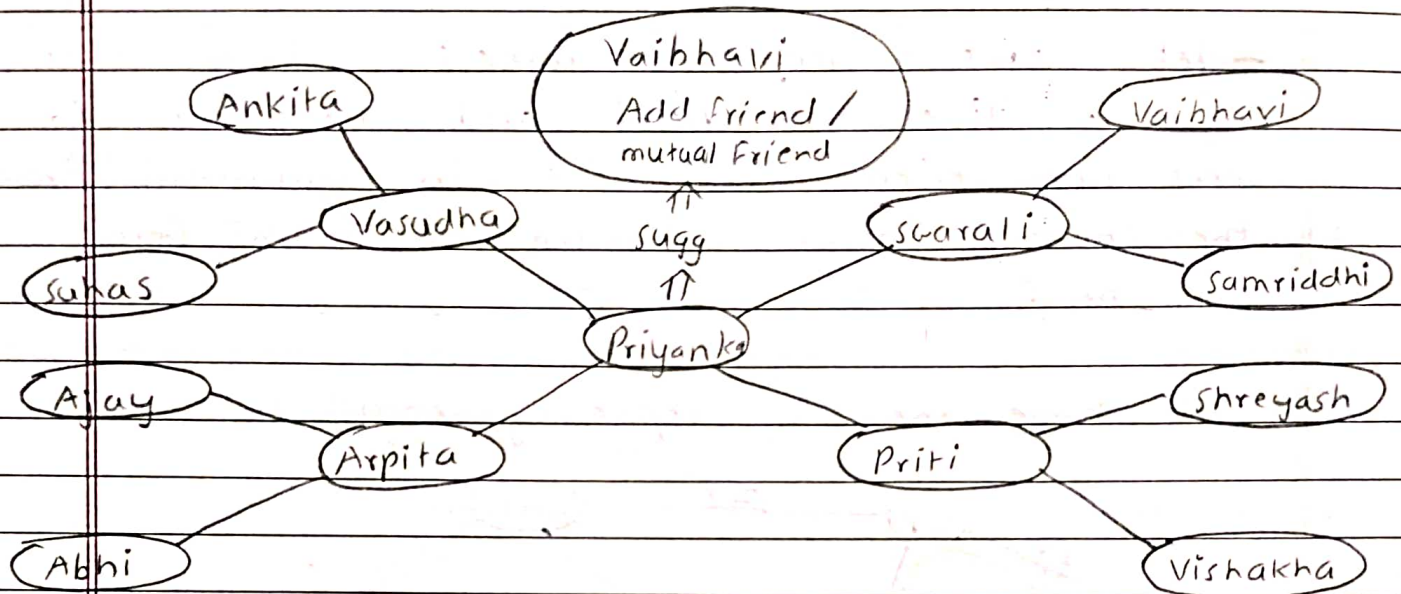 Vaibhavi
Add friend /
mutual Friend
Ankita
Vaibhavi
Vasudha
sugg
swarali
suhas
samriddhi
Priyanka
Ajay
shreyash
Arpita
Priti
Abhi
Vishakha